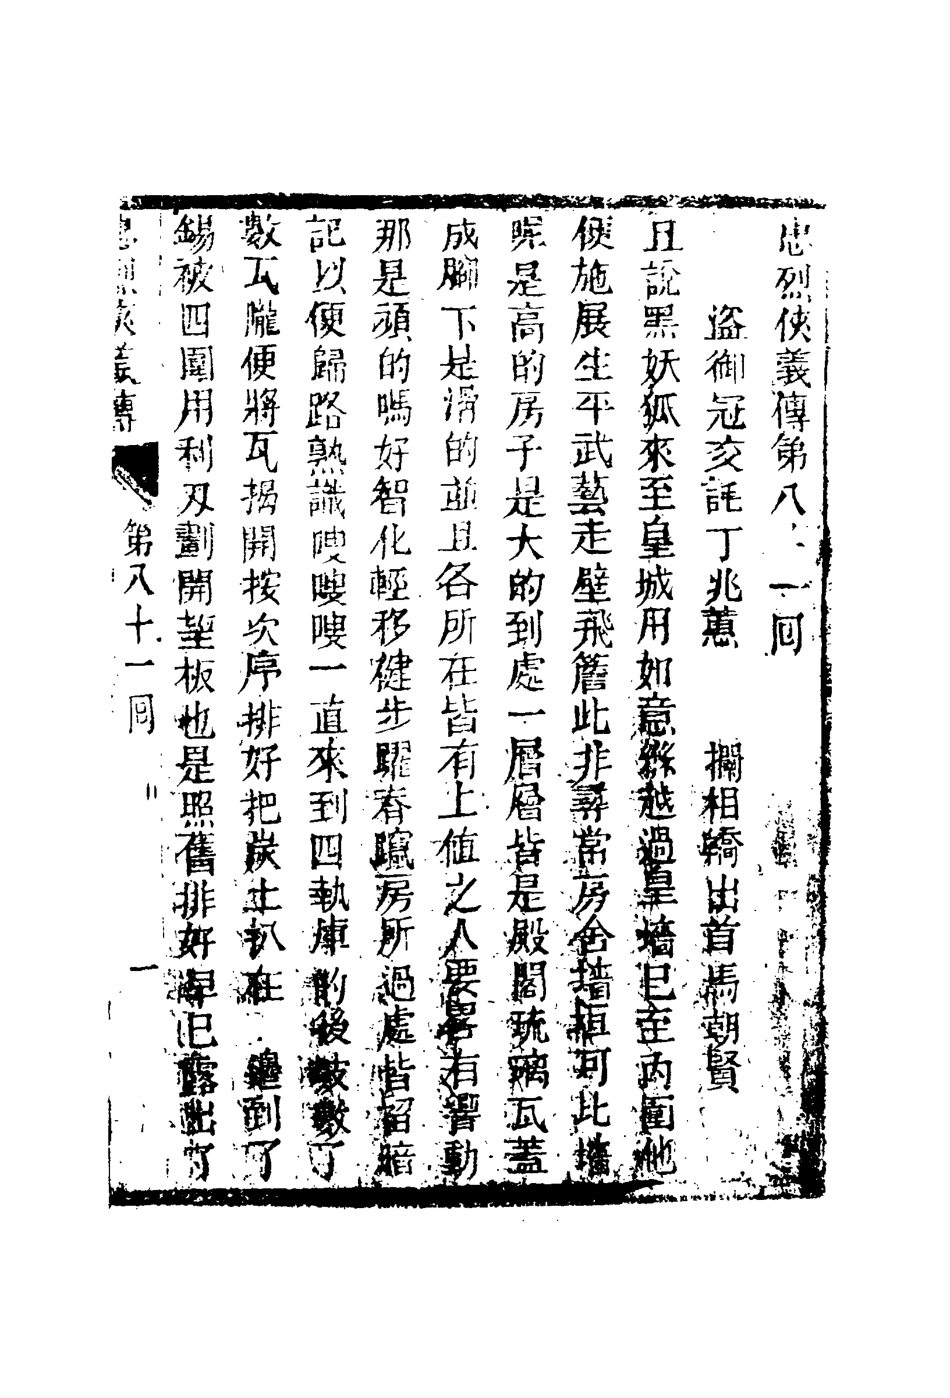 忠烈俠義傳第八十一回
盜御冠亥託丁兆蕙　攔相轎出首馬朝賢
且說黑妖狐來至皇城用如意絛越過皇墻已至內圍他
便施展生平武藝走壁飛簷此非尋常房舍墻垣可比墻
呢是高的房子是大的到處一層層皆是殿閣琉璃瓦蓋
成腳下是滑的並且各所在皆有上値之人要畧有響動
那是頑的嗎好智化輕移健步躍脊竄房所過處皆留暗
記以便歸路熟識嗖嗖嗖一直來到四執庫的後坡數了
數瓦隴便將瓦揭開按次序排好把炭土扒在 邊到了
錫被四圍用利刃劃開望板也是照舊排好早已露出了
忠烈俠義傳　第八十一回　一